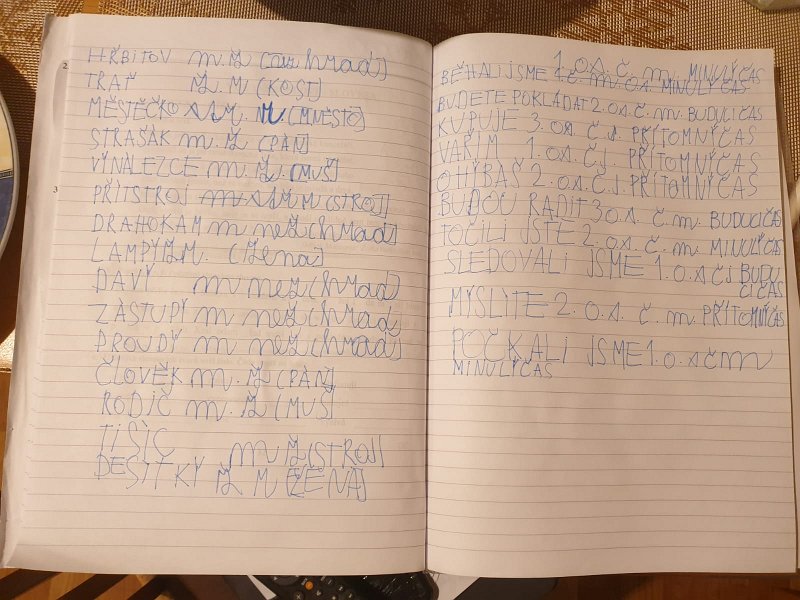 HŘBITOV m.ž (hrad)
TRAŤ Ž.M (KOST)
MĚSTĚČKO M. (MNĚSTO)
STRAŠÁK m.ž (PÁN)
VYNÁLEZCE m.ž.(MUŠ)
PŘÍTSTROJ M (STROJ)
DRAHOKAM m než (hrad)
LAMPYŽM. (žena)
DAVY m než (hrad)
ZÁSTUPY m než (hrad
PROUDY m než (hrad)
ČLOVĚK m.ž (PÁN)
RODIČ m.ž (MUŠ)
TISÍC m ž (STROJ)
DESÍTKY Ž M (ŽENA)
1.os.č.m. MINULÝ ČAS
BĚHALI JSME 1.č.m.os. MINULÝ ČAS
BUDETE POKLÁDAT 2.os.č.m. BUDUCÍ ČAS
KUPUJE 3.os.č.j. PŘÍTOMNÝ ČAS
VAŘÍM 1.os.č.j. PŘÍTOMNÝ ČAS
OHÝBÁŠ 2.os.č.j. PŘÍTOMNÝ ČAS
BUDOU RADIT 3 os. č.m. BUDUCÍ ČAS
TOČILI JSTE 2.os.č.m. MINULÝ ČAS
SLEDOVALI JSME 1.o.s č j BUDU
CÍ ČAS
MYSLÍTE 2.o.s. č.m. PŘÍTOMNÝ ČAS
POČKALI JSME 1.o.s č m
MINULÝ ČAS